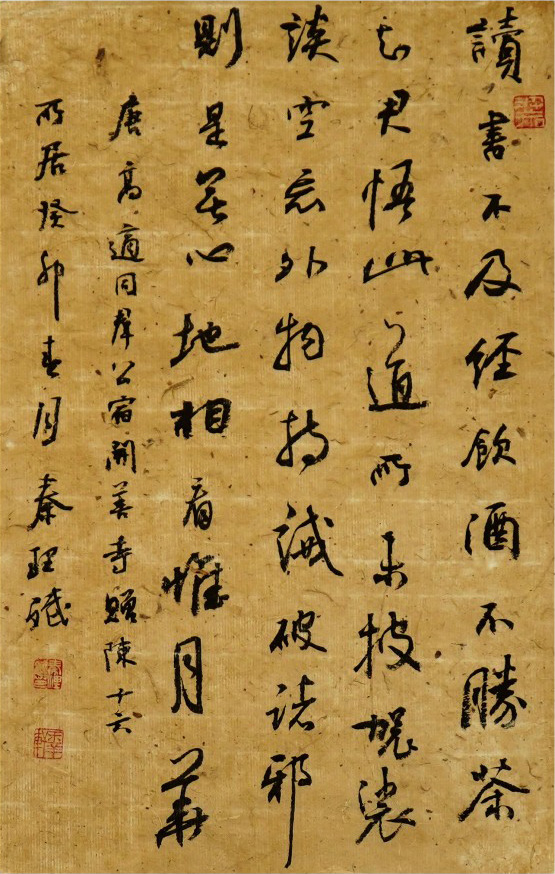 讀書不及經飲酒不勝茶
知君悟此道所未披袈裟
談空忘外物持誡破諸邪
則是無心地相看惟月華
唐高適同羣公宿開善寺贈陳十六
所居癸卯春月秦理